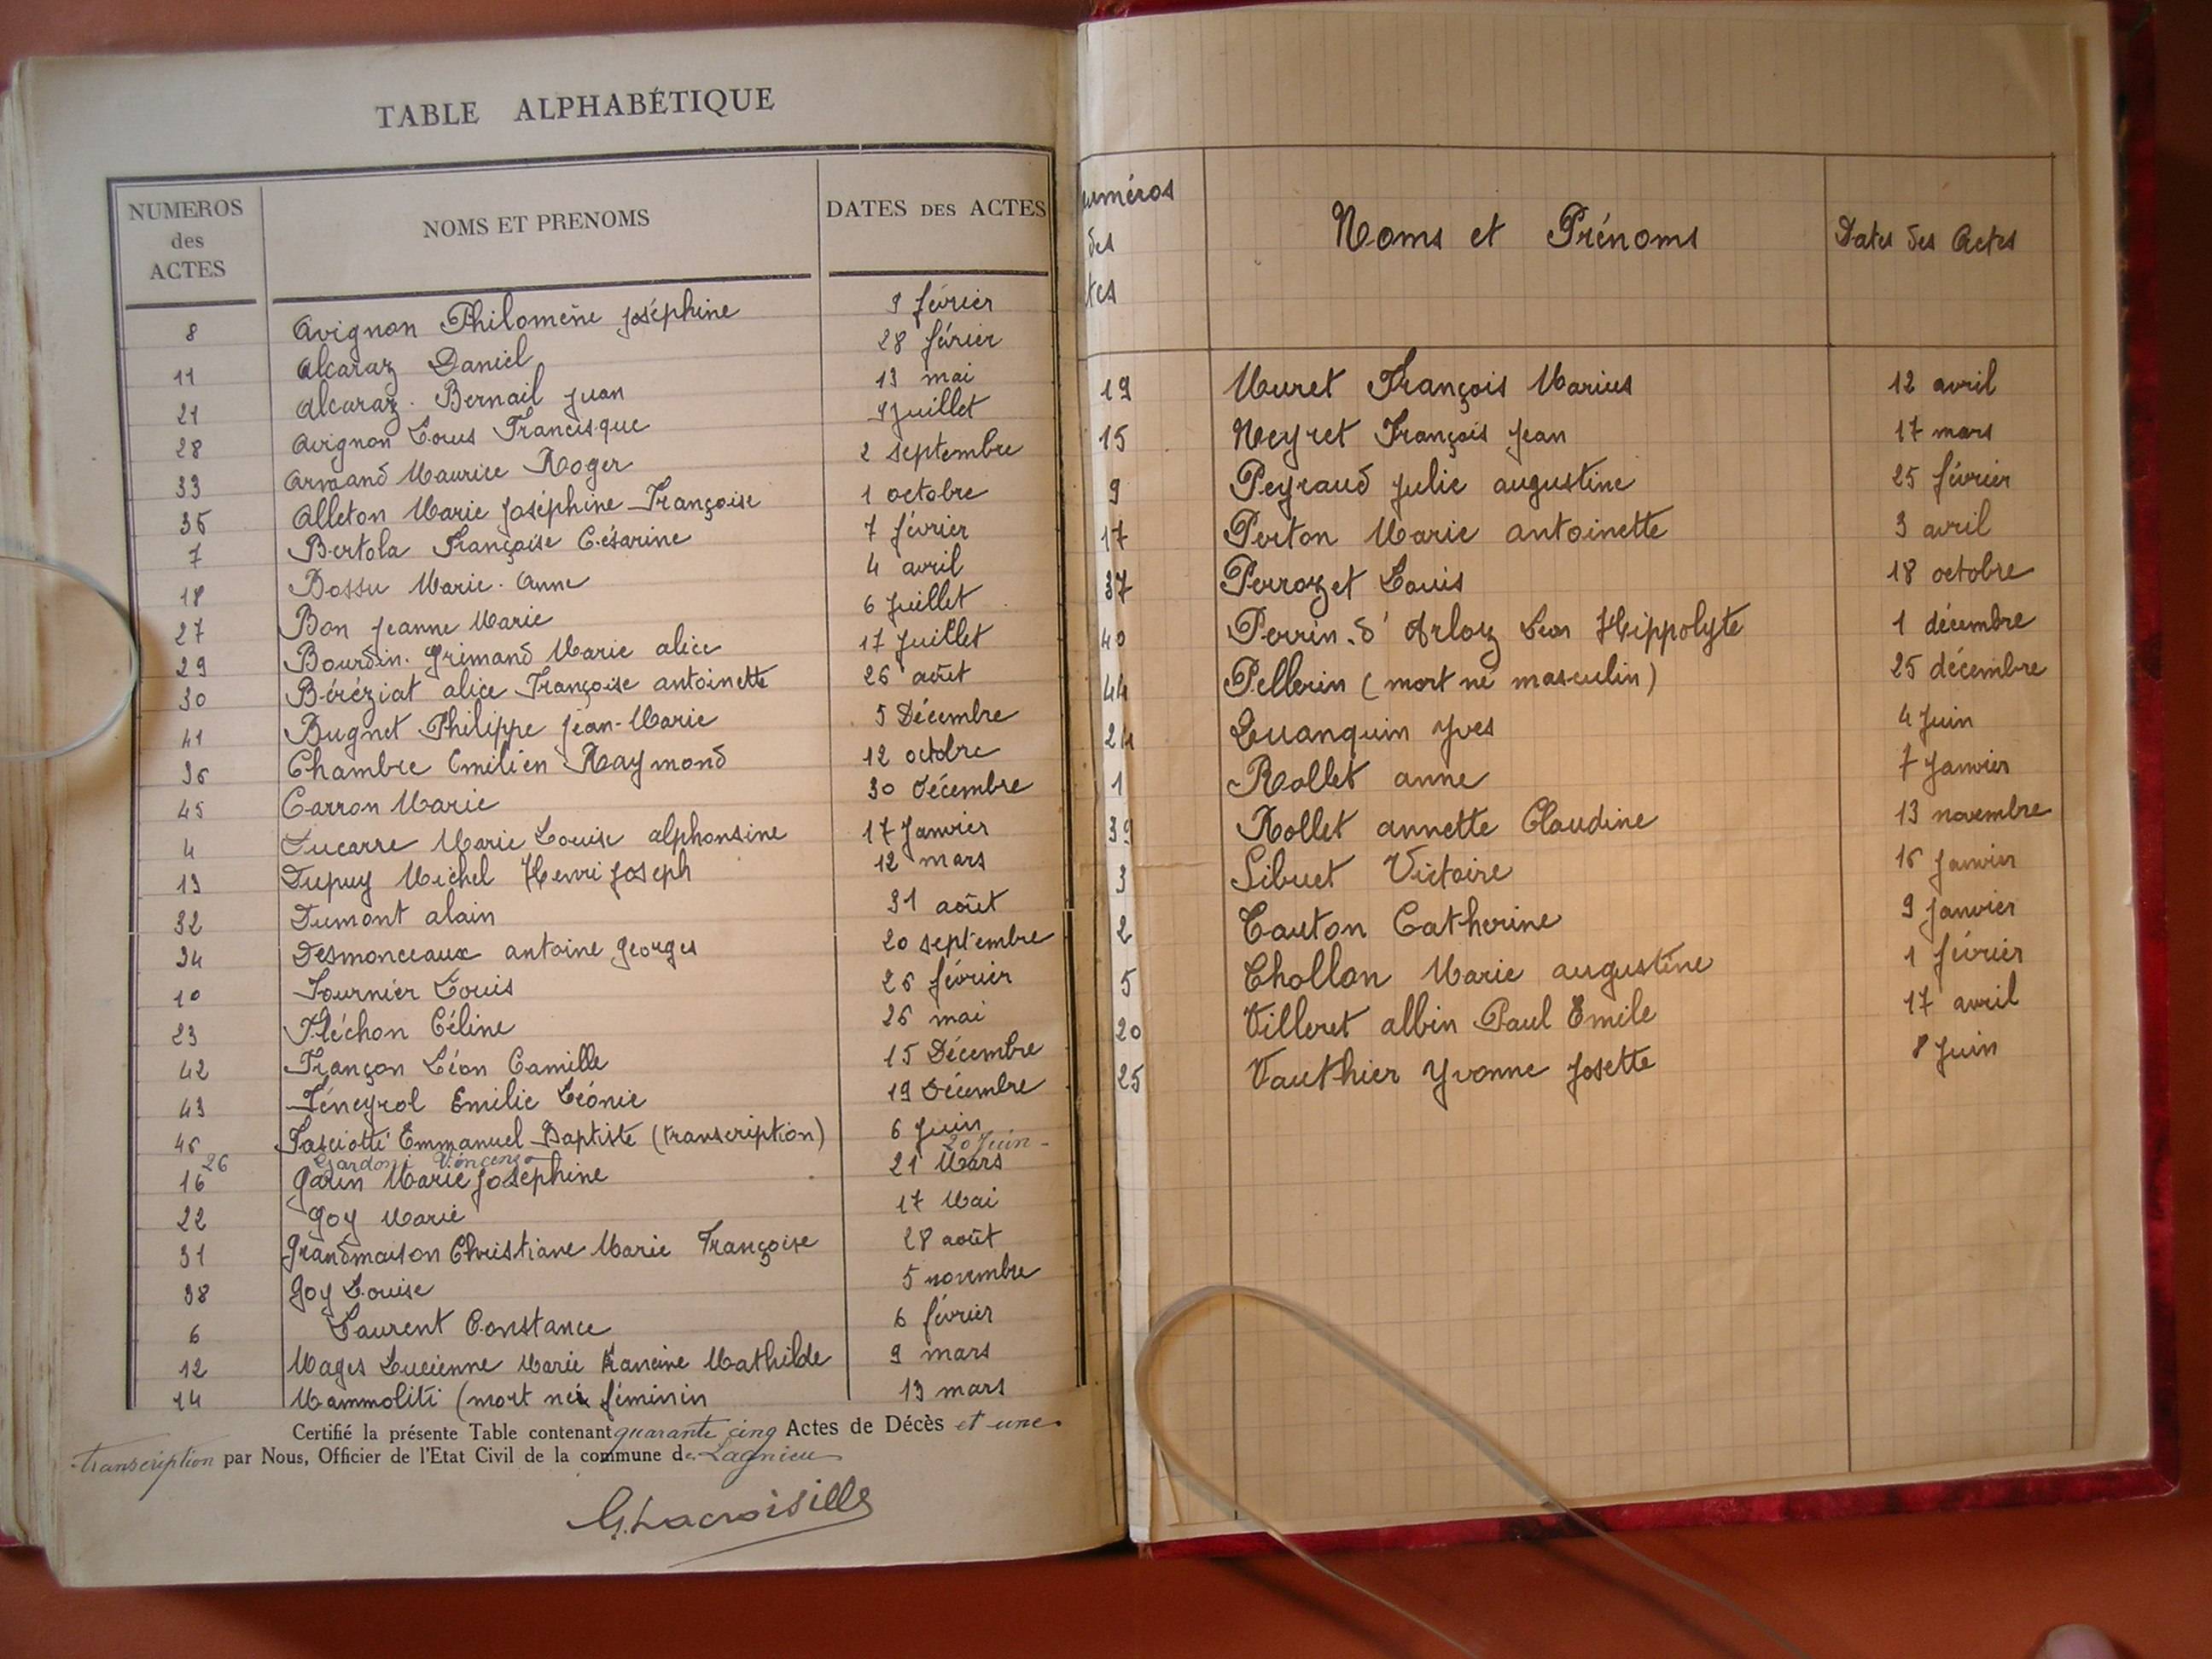 TABLE ALPHABÉTIQUE
NUMEROS des ACTES NOMS ET PRENOMS DATES DES ACTES
8 Avignon Philomène Joséphine 9 février
11 Alcaraz Daniel 28 février
21 Alcaraz. Bernail Juan 13 mai
28 Avignon Louis Francisque Juillet
33 Arvaand Maurice Roger 2 septembre
35 Alleton Marie Joséphine Françoise 1 octobre
7 Bertola Françoise Césarine 7 février
18 Bossu Marie. Anne 4 avril
27 Bon Jeanne Marie 6 Juillet
29 Bourdin. Grimand Marie alice 17 Juillet
30 Béréziat alice Françoise antoinette 26 août
41 Bugnet Philippe Jean-Marie 5 Décembre
36 Chambre Emilien Raymond 12 octobre
45 Carron Marie 30 décembre
4 Ducarre Marie Louise alphonsine 17 Janvier
13 Dupuy Michel Henri Joseph 12 mars
32 Dumont alain 31 août
34 Desmonceaux antoine Georges 20 septembre
10 Fournier Louis 26 février
23 Fléchon Céline 26 mai
42 Françon Léon Camille 15 Décembre
43 Féneyrol Emilie Léonie 19 Décembre
46 Fasciotti Emmanuel Baptiste (transcription) 6 Juin
26 Giardoni Vincenzo 20 Juin -
16 Garin Marie Joséphine 21 Mars
22 Goy Marie 17 Mai
31 Grandmaison Christiane Marie Françoise 28 août
38 Goy Louise 5 novembre
6 Laurent Constance 6 février
12 Mages Lucienne Marie Francine Mathilde 9 mars
14 Mammoliti (mort née féminin 13 mars
Certifié la présente Table contenant quarante cinq Actes de Décès et une
transcription par Nous, Officier de l'Etat Civil de la commune de Lagnieu
G. Lacroisille
uméros des tes Noms et Prénoms Dates des Actes
19 Muret François Marius 12 avril
15 Neyret François Jean 17 mars
9 Peyraud Julie augustine 25 février
17 Perton Marie antoinette 3 avril
37 Perrozet Louis 18 octobre
40 Perrin. d'Arloz Léon Hippolyte 1 décembre
44 Pellerin (mort né masculin) 25 décembre
24 Quanquin Yves 4 Juin
1 Rollet anne 7 Janvier
39 Rollet annette Claudine 13 novembre
3 Sibuet Victoire 16 Janvier
2 Tauton Catherine 9 janvier
5 Thollon Marie augustine 1 février
20 Villeret albin Paul Emile 17 avril
25 Vauthier Yvonne Josette 8 Juin